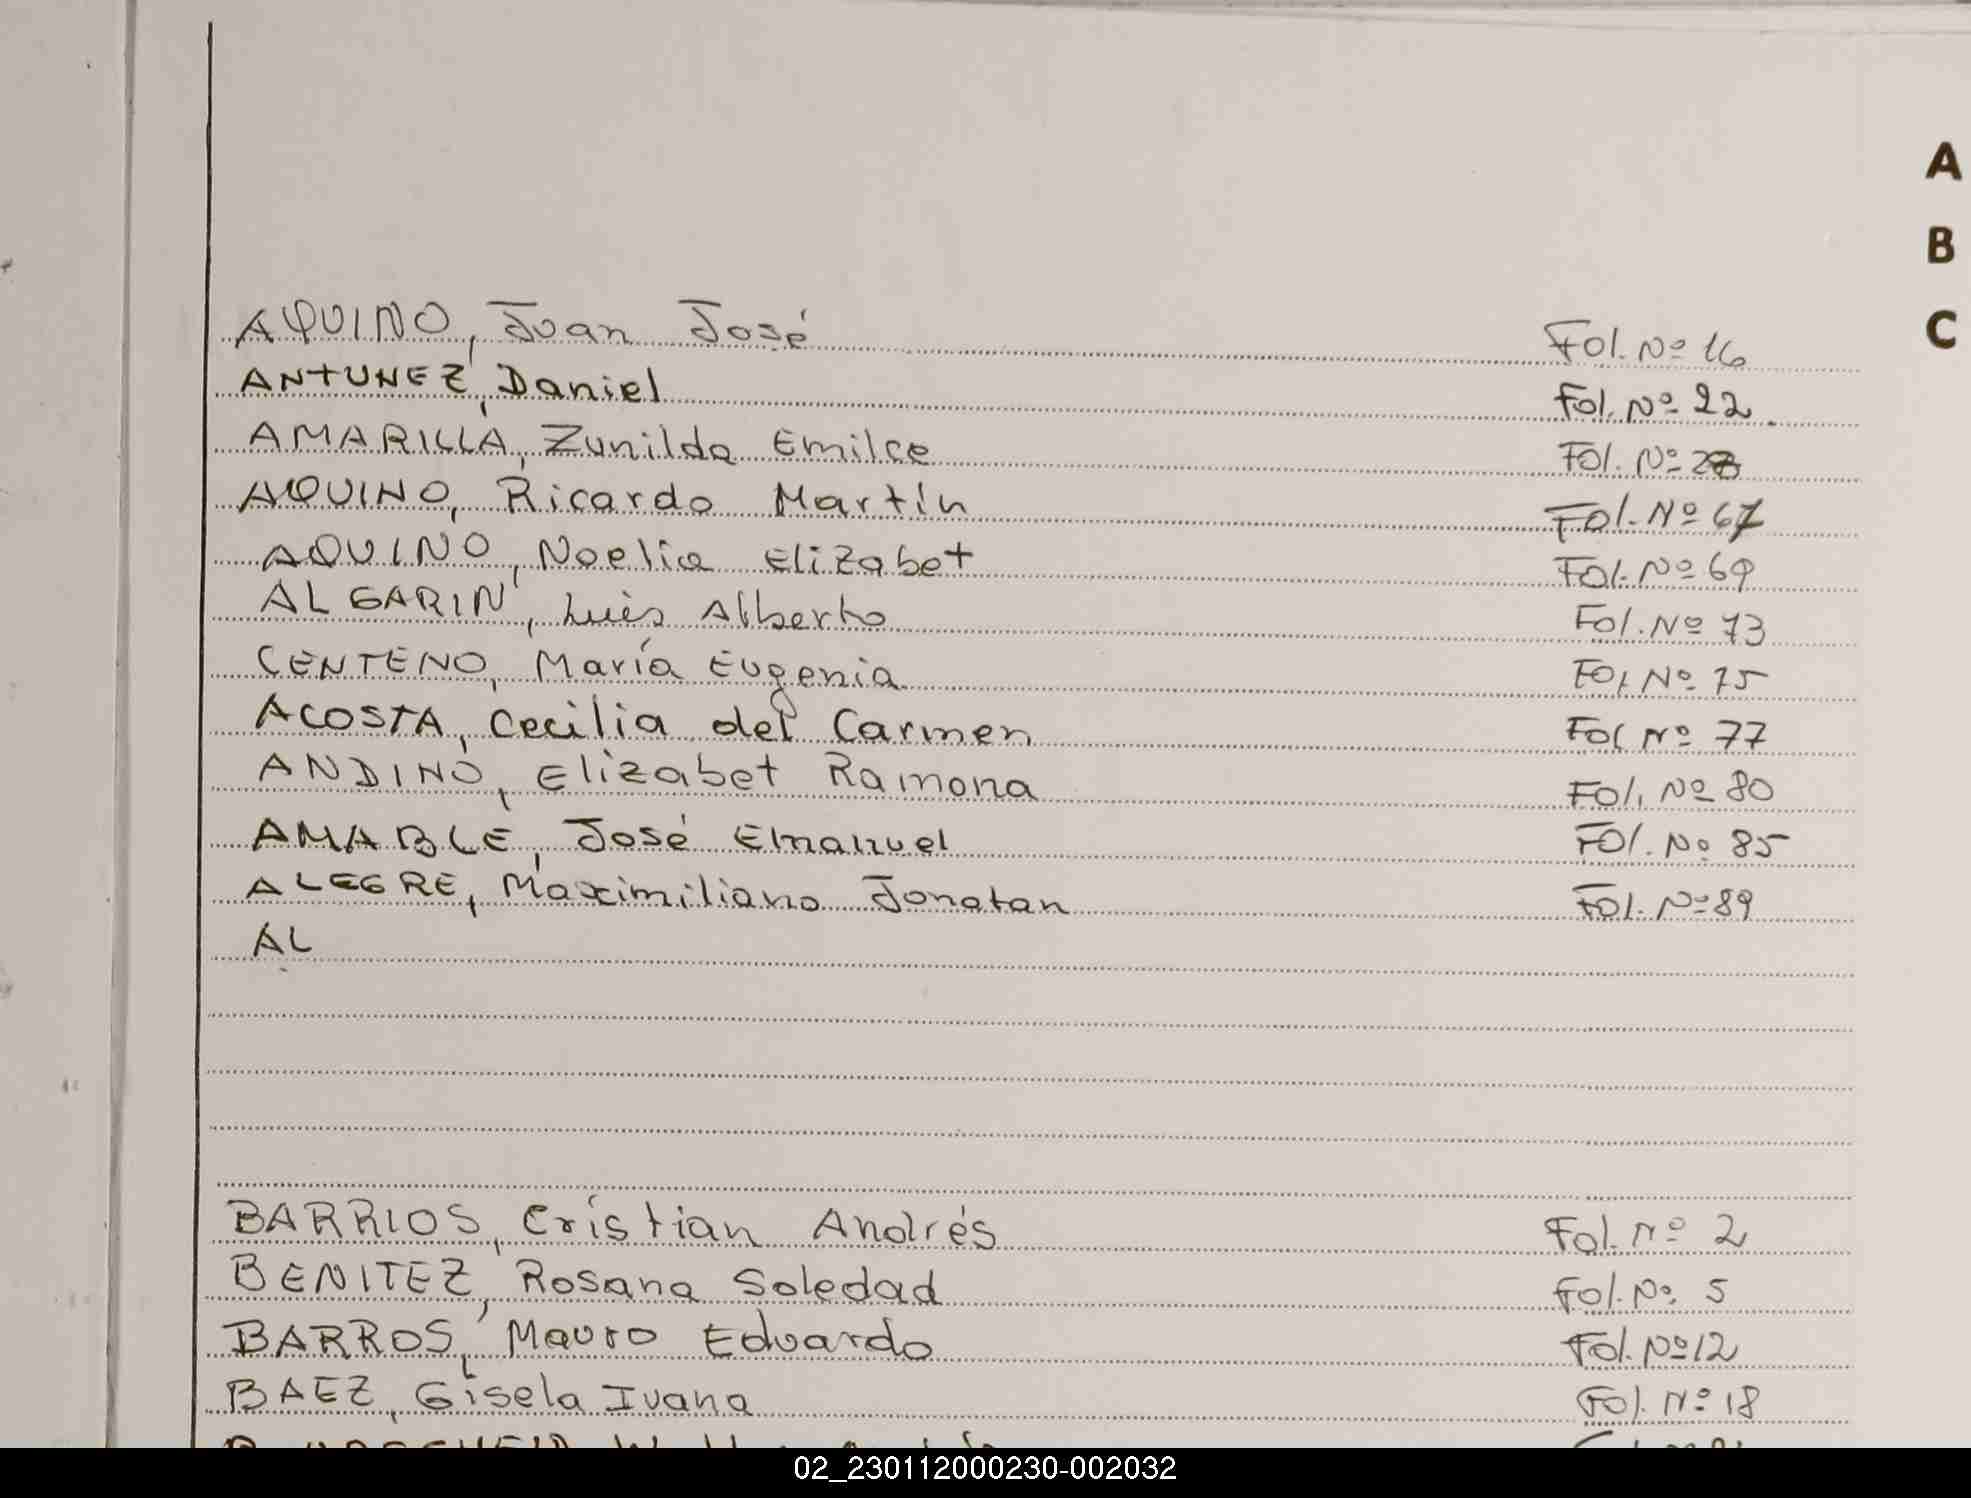 A
B
C
AQUINO, Juan José Fol. Nº 16
ANTUNEZ, Daniel Fol. Nº 22
AMARILLA, Zunilda Emilce Fol. Nº
AQUINO, Ricardo Martín Fol. Nº 67
AQUINO, Noelia Elizabet Fol. Nº 69
ALGARIN, Luis Alberto Fol. Nº 73
CENTENO, María Eugenia Fol Nº 75
ACOSTA, Cecilia del Carmen Fol Nº 77
ANDINO, Elizabet Ramona Fol. Nº 80
AMABLE, José Emanuel Fol. Nº 85
ALEGRE, Maximiliano Jonatan Fol. Nº 89
AL
BARRIOS, Cristian Andrés Fol. Nº 2
BENITEZ, Rosana Soledad Fol. Nº 5
BARROS, Mauro Eduardo Fol. Nº 12
BAEZ, Gisela Ivana Fol. Nº 18
02_230112000230-002032